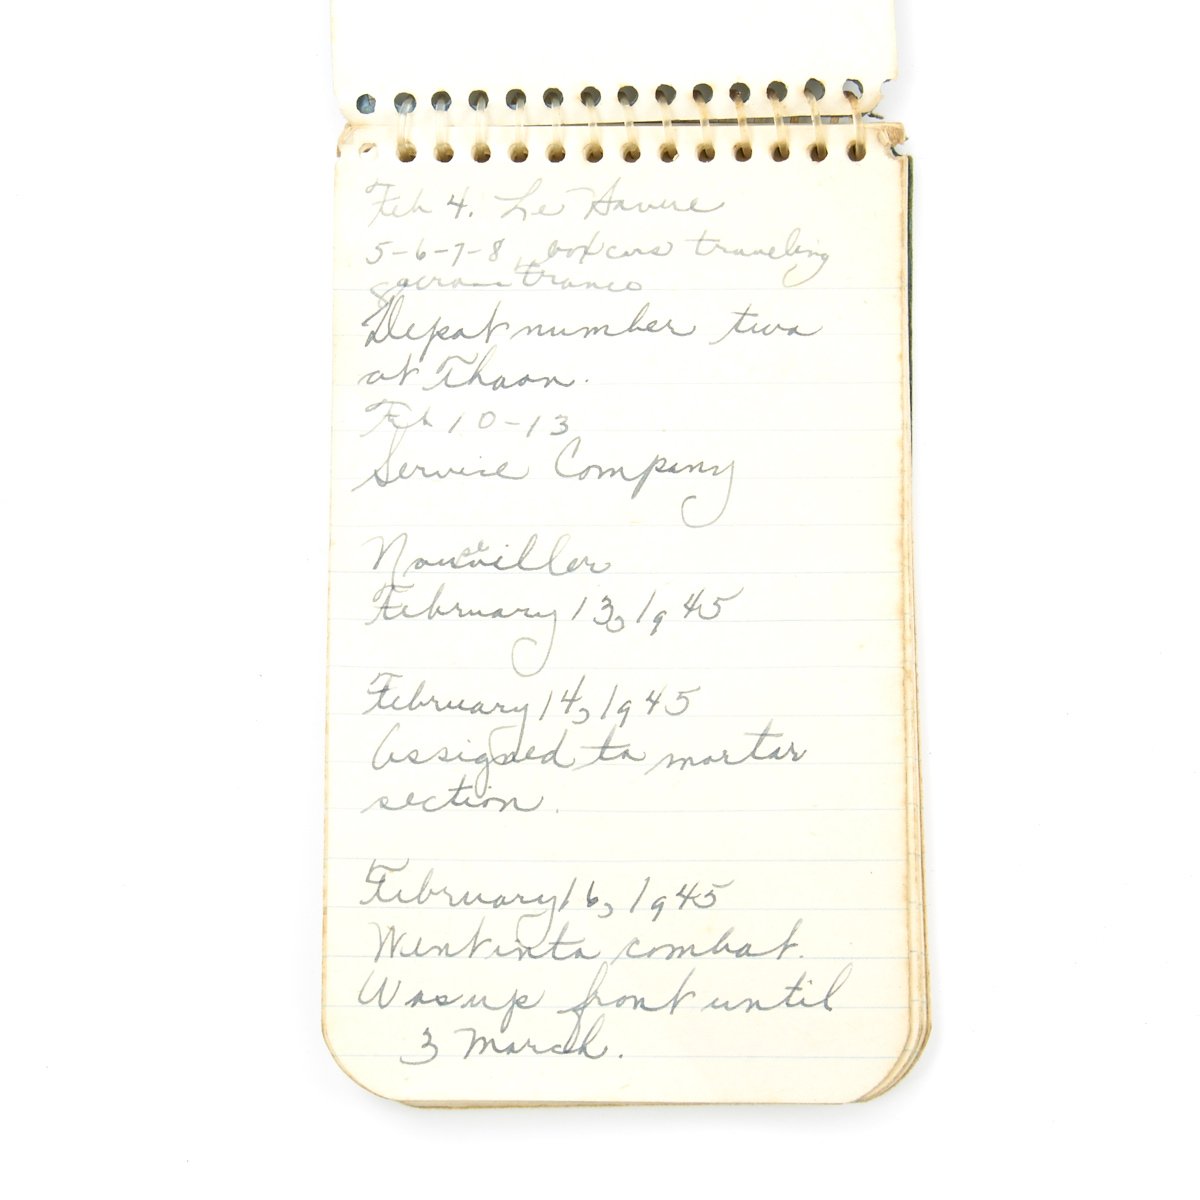 Feb 4. Le Havre
5-6-7-8 boxcars traveling
across France
Depot number two
at Thaon.
Feb 10-13
Service Company
Nouseviller
February 13, 1945
February 14, 1945
Assigned to mortar
section.
February 16, 1945
Went into combat.
Was up front until
3 March.